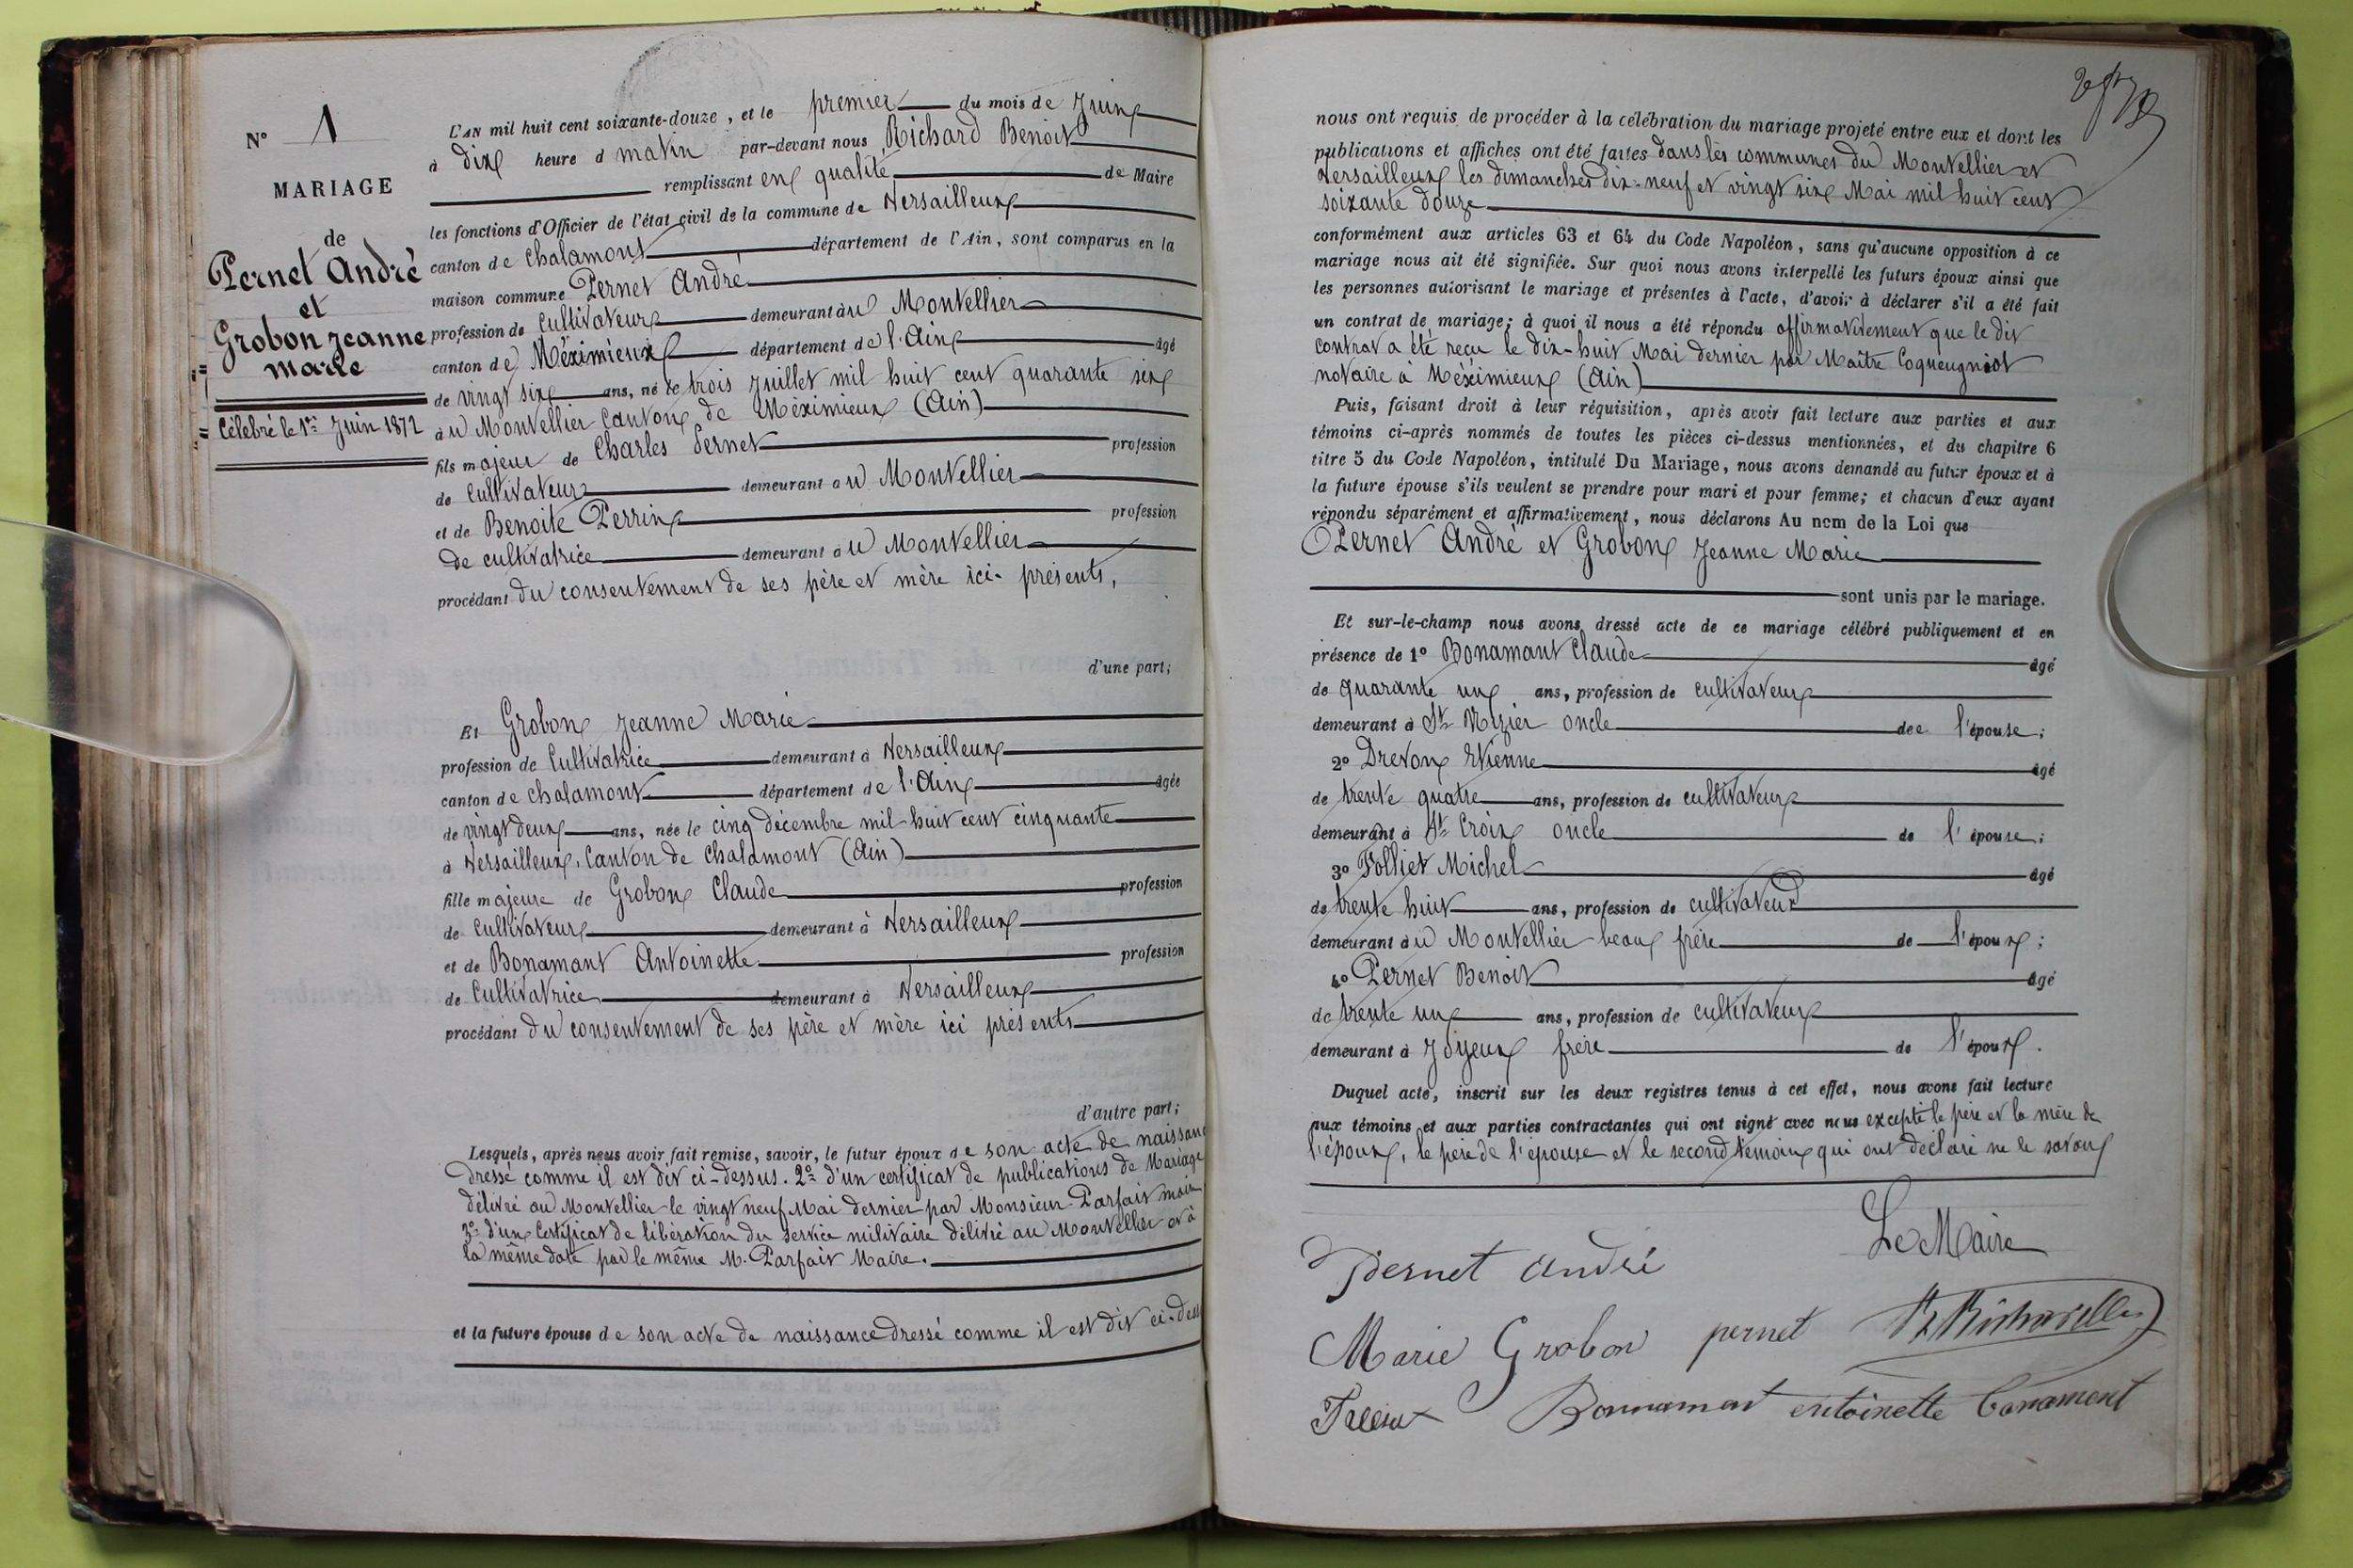 N° 1
MARIAGE
de
Pernet André
et
Grobon Jeanne
Marie
Célébré le 1er Juin 1872
L'AN mil huit cent soixante-douze, et le premier du mois de Juin
à dix heure d matin par-devant nous Richard Benoit
remplissant en qualité de Maire
les fonctions d'Officier de l'état civil de la commune de Versailleux
canton de Chalamont département de l'Ain, sont comparus en la
maison commune Pernet André
profession de Cultivateur demeurant àu Montellier
canton de Méximieux département de l'Ain âgé
de vingt six ans, né le trois Juillet mil huit cent quarante six
àu Montellier Canton de Méximieux (Ain)
fils majeur de Charles Pernet profession
de Cultivateur demeurant au Montellier
et de Benoite Perrin profession
de cultivatrice demeurant àu Montellier
procédant du consentement de ses père et mère ici présents,
d'une part;
Et Grobon Jeanne Marie
profession de Cultivatrice demeurant à Versailleux
canton de Chalamont département de l'Ain âgée
de vingt deux ans, née le cinq décembre mil huit cent cinquante
à Versailleux, Canton de Chalamont (Ain)
fille majeure de Grobon Claude profession
de Cultivateur demeurant à Versailleux
et de Bonamant Antoinette profession
de Cultivatrice demeurant à Versailleux
procédant du consentement de ses père et mère ici présents
d'autre part;
Lesquels, après nous avoir fait remise, savoir, le futur époux de son acte de naissanc
dressé comme il est dit ci-dessus. 2° d'un certificat de publications de Mariage
délivré au Montellier le vingt neuf Mai dernier par Monsieur Parfait maire
3° d'un Certificat de libération du service militaire délivré au Montellier et à
la même date par le même M. Parfait Maire.
et la future épouse de son acte de naissance dressé comme il est dit ci-dess
nous ont requis de procéder à la célébration du mariage projeté entre eux et dont les
publications et affiches ont été faites dans les communes du Montellier et
Versailleux les dimanches dix-neuf et vingt six Mai mil huit cent
soixante douze
conformément aux articles 63 et 64 du Code Napoléon, sans qu'aucune opposition à ce
mariage nous ait été signifiée. Sur quoi nous avons interpellé les futurs époux ainsi que
les personnes autorisant le mariage et présentes à l'acte, d'avoir à déclarer s'il a été fait
un contrat de mariage; à quoi il nous a été répondu affirmativement que le dit
contrat a été reçu le dix-huit Mai dernier par Maître Coqueugniot
notaire à Méximieux (Ain)
Puis, faisant droit à leur réquisition, après avoir fait lecture aux parties et aux
témoins ci-après nommés de toutes les pièces ci-dessus mentionnées, et du chapitre 6
titre 5 du Code Napoléon, intitulé Du Mariage, nous avons demandé au futur époux et à
la future épouse s'ils veulent se prendre pour mari et pour femme; et chacun d'eux ayant
répondu séparément et affirmativement, nous déclarons Au nom de la Loi que
Pernet André et Grobon Jeanne Marie
sont unis par le mariage.
Et sur-le-champ nous avons dressé acte de ce mariage célébré publiquement et en
présence de 1° Bonamant Claude âgé
de quarante un ans, profession de cultivateur
demeurant à St Nizier oncle dee l'épouse;
2° Drevon Etienne âgé
de trente quatre ans, profession de cultivateur
demeurant à Ste Croix oncle de l'épouse;
3° Folliet Michel âgé
de trente huit ans, profession de cultivateur
demeurant àu Montellier beau frère de l'époux;
4° Pernet Benoit âgé
de trente un ans, profession de cultivateur
demeurant à Joyeux frère de l'époux.
Duquel acte, inscrit sur les deux registres tenus à cet effet, nous avons fait lecture
aux témoins et aux parties contractantes qui ont signé avec nous excepté le père et la mère de
l'époux, le père de l'épouse et le second témoin qui ont déclaré ne le savoir
Le Maire
Pernet André
Marie Grobon pernet
Bonnamant entoinette bonament